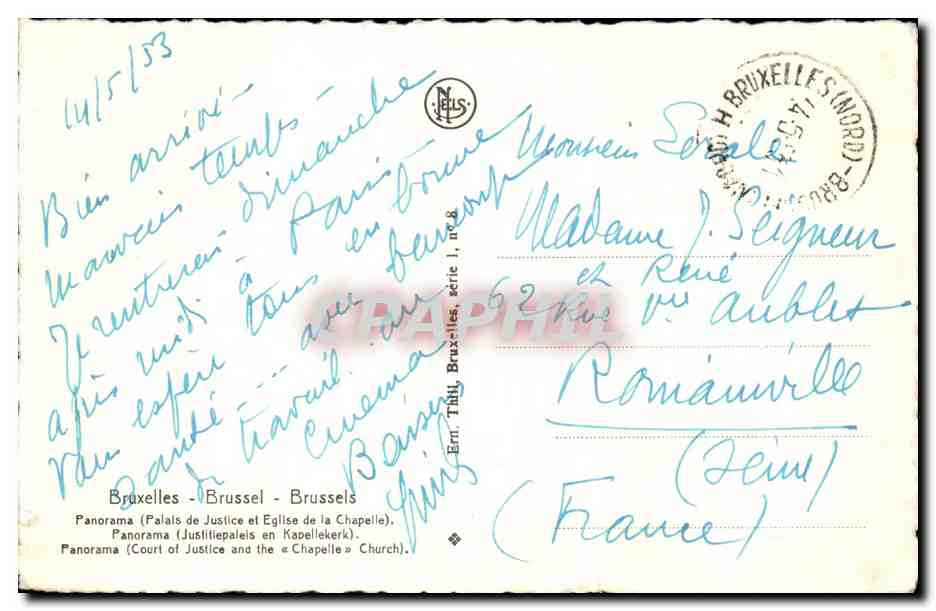 14/5/53
Bien arrivé
mauvais temps
Je rentrerai dimanche
après midi à Paris
vous espère tous en bonne
santé --- avec beaucoup
de travail au
cinéma
Baisers
NELS
BRUXELLES (NORD)
14-5
Monsieur
Madame J. Seigneur
et René
62 Rue Vve Aublet
Romainville
(Seine)
(France)
CPAPHIL
Ern. Thill, Bruxelles, série 1, n° 8
Bruxelles - Brussel - Brussels
Panorama (Palais de Justice et Eglise de la Chapelle).
Panorama (Justitiepaleis en Kapellekerk).
Panorama (Court of Justice and the « Chapelle » Church).